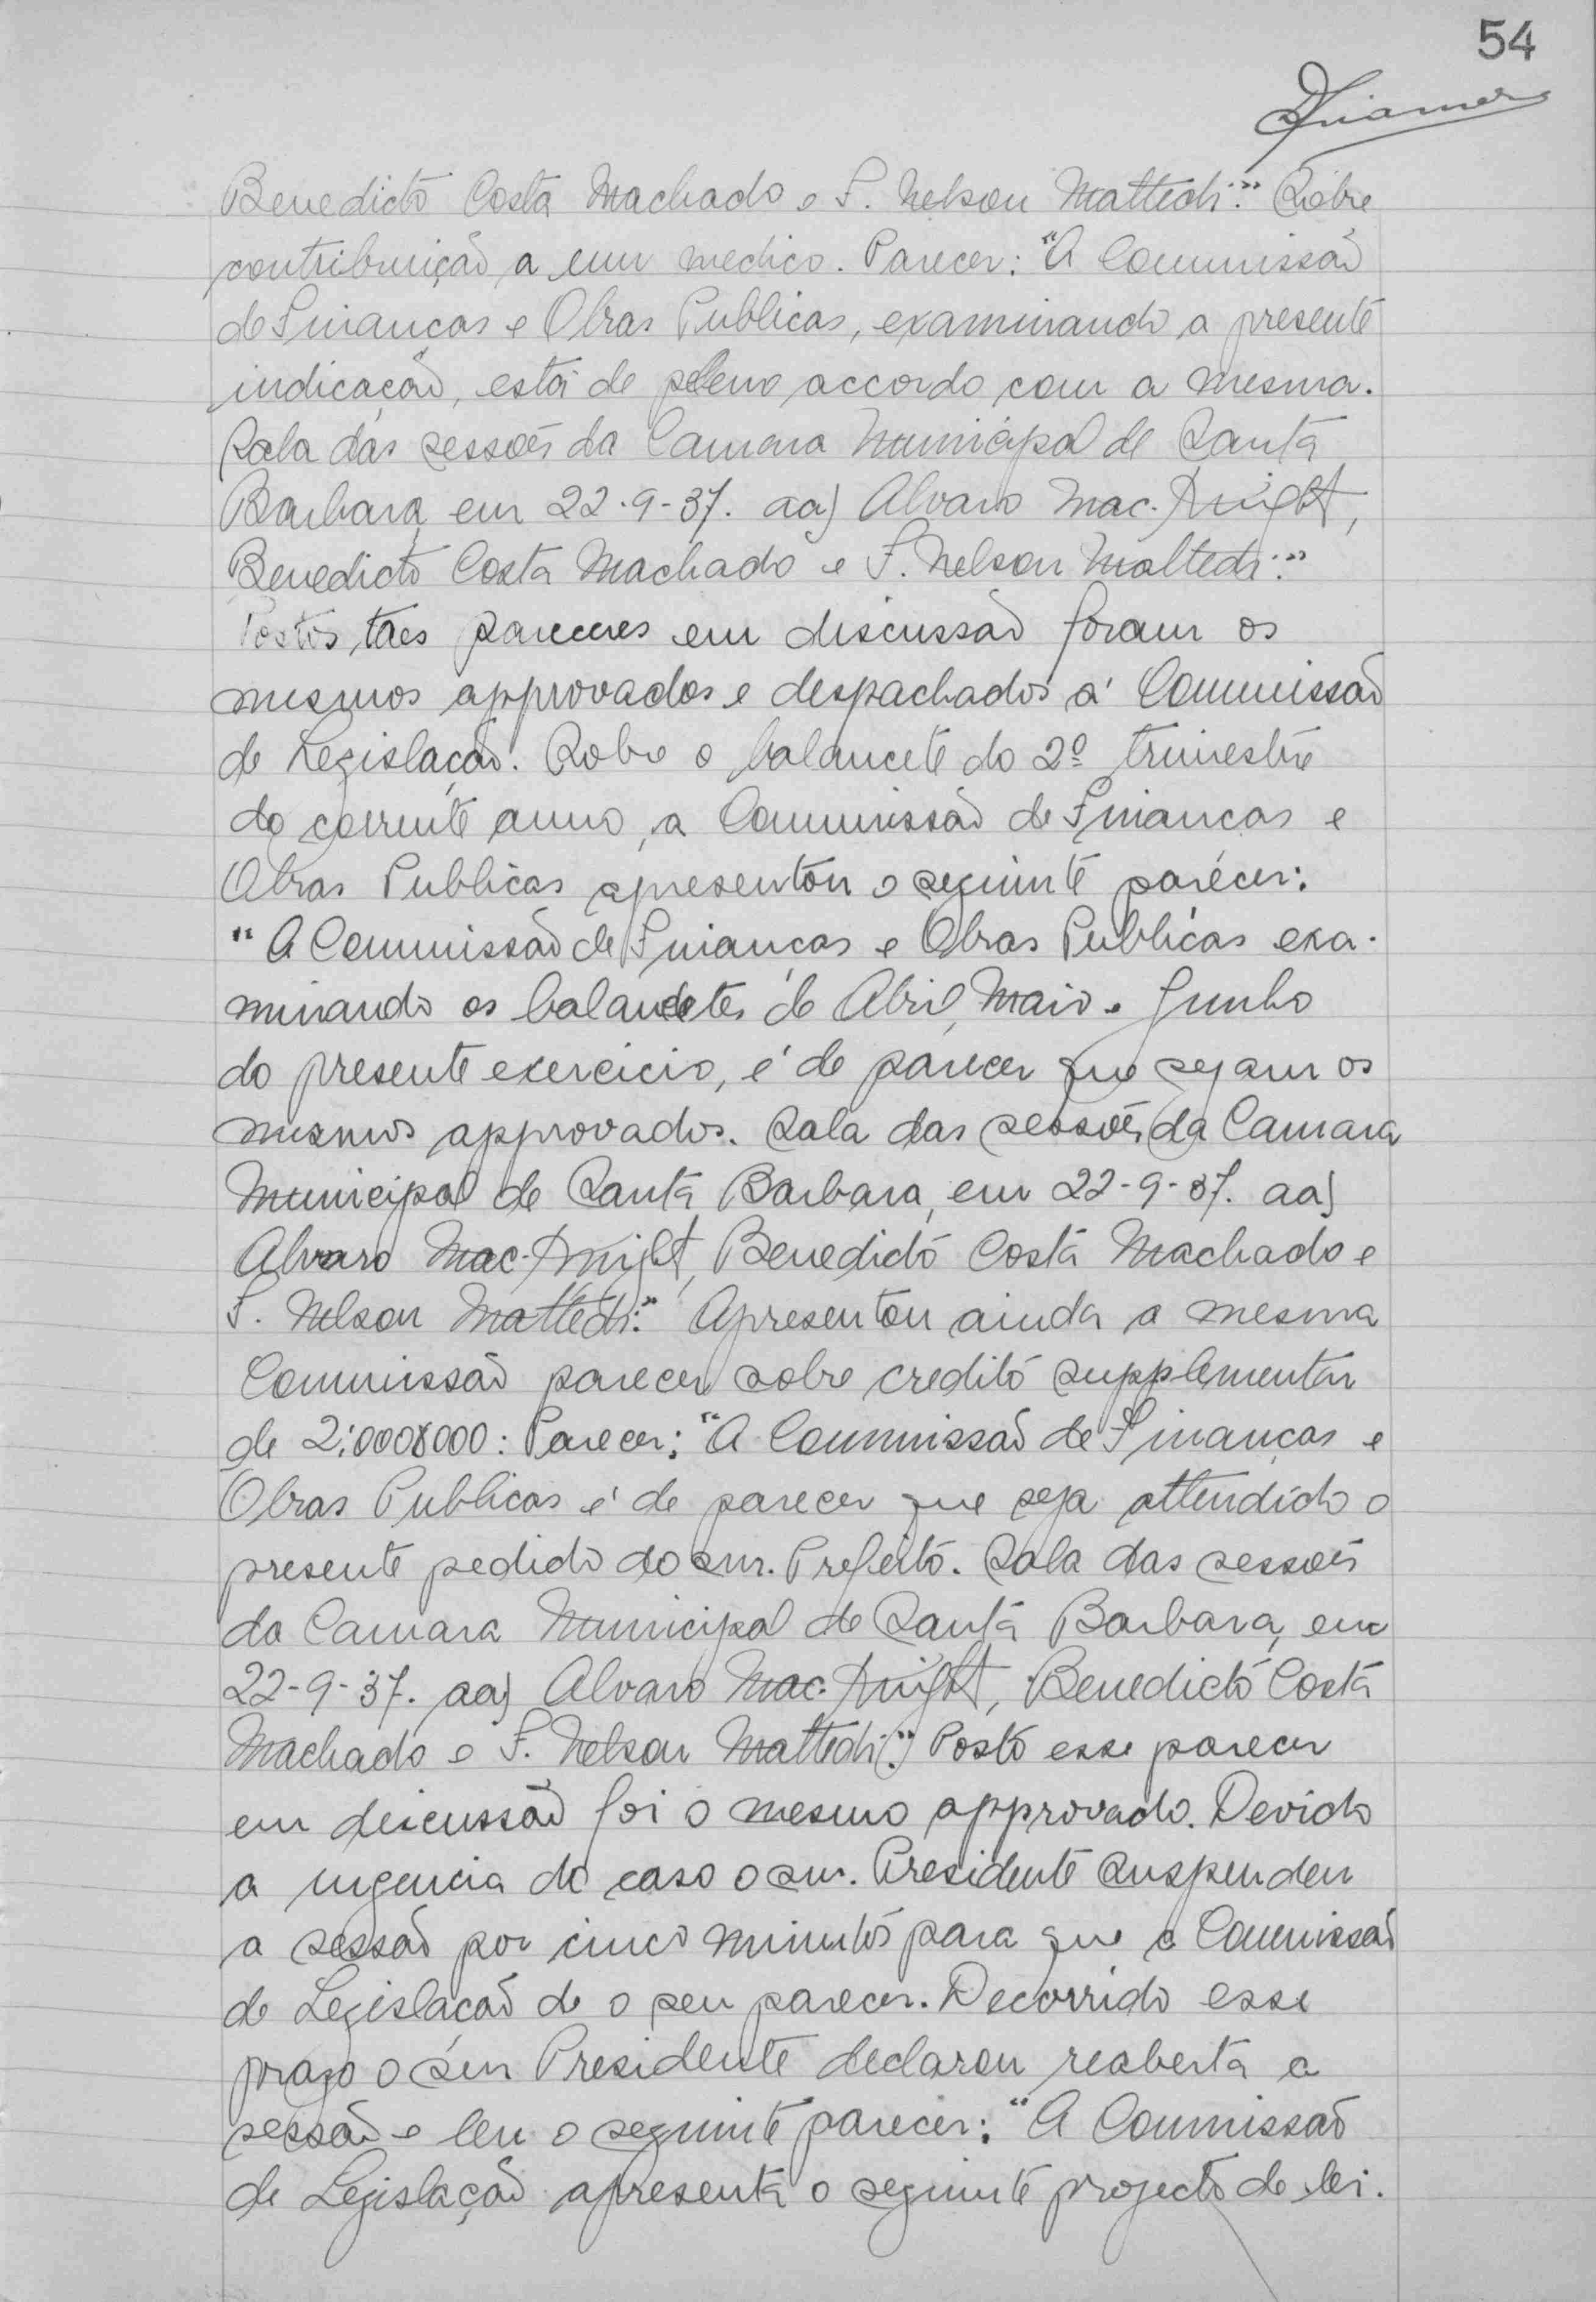 54
Benedicto Costa Machado e F. Nelson Mattedi." Sobre
contribuição a um medico. Parecer: "A Commissão
de Finanças e Obras Publicas, examinando a presente
indicação, está de pleno accordo com a mesma.
Sala das sessões da Camara Municipal de Santa
Barbara em 22-9-37. aa) Alvaro Mac-Knight,
Benedicto Costa Machado e F. Nelson Mattedi."
Postos táes pareceres em discussão foram os
mesmos approvados e despachados á Commissão
de Legislação. Sobre o balancete do 2º trimestre
do corrente anno, a Commissão de Finanças e
Obras Publicas apresentou o seguinte parecer:
"A Commissão de Finanças e Obras Publicas exa-
minando os balancetes de Abril, Maio e Junho
do presente exercicio, é de parecer que sejam os
mesmos approvados. Sala das sessões da Camara
Municipal de Santa Barbara, em 22-9-37. aa)
Alvaro Mac-Knight, Benedicto Costa Machado e
F. Nelson Mattedi." Apresentou ainda a mesma
Commissão parecer sobre credito supplementar
de 2:000$000: Parecer: "A Commissão de Finanças e
Obras Publicas é de parecer que seja attendido o
presente pedido do snr. Prefeito. Sala das sessões
da Camara Municipal de Santa Barbara, em
22-9-37. aa) Alvaro Mac-Knight, Benedicto Costa
Machado e F. Nelson Mattedi." Posto esse parecer
em discussão foi o mesmo approvado. Devido
a urgencia do caso o snr. Presidente suspendeu
a sessão por cinco minutos para que a Commissão
de Legislação de o seu parecer. Decorrido esse
prazo o snr Presidente declarou reaberta a
sessão e leu o seguinte parecer: "A Commissão
de Legislação apresenta o seguinte projecto de lei.